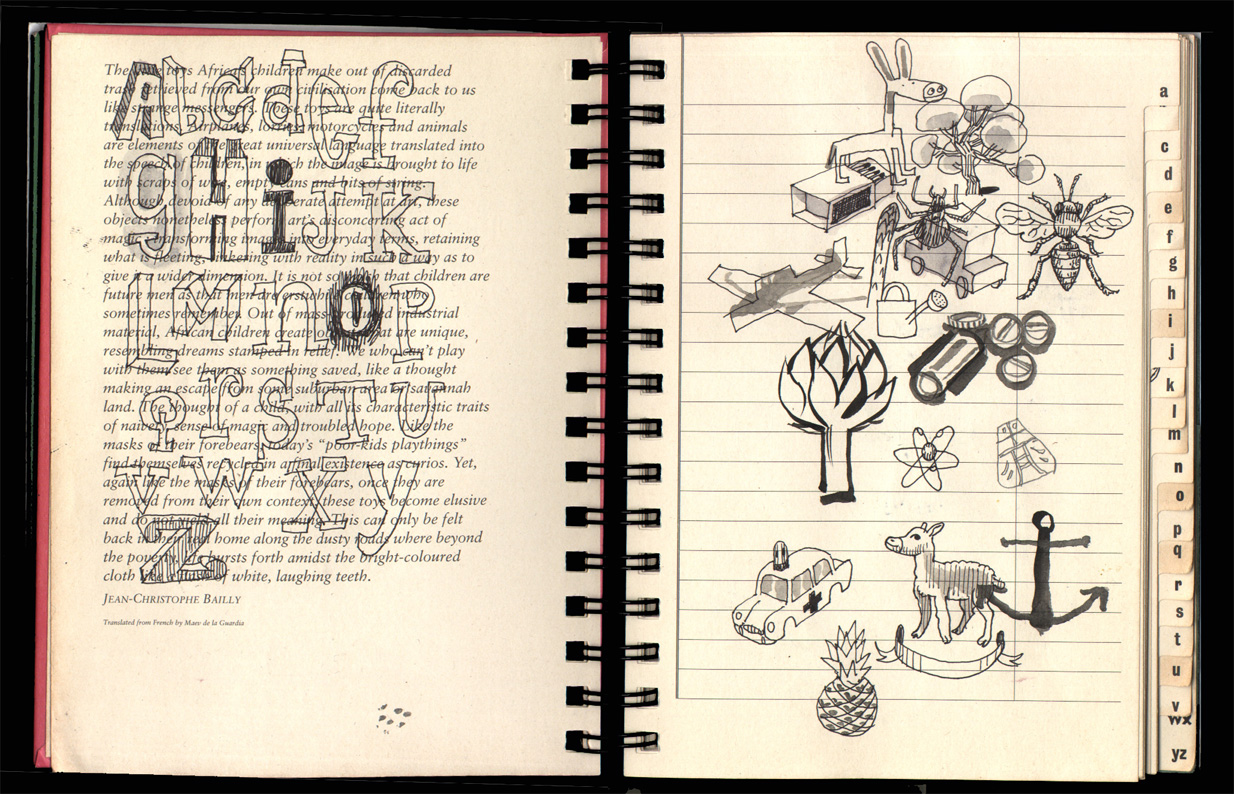 The toys Africa's children make out of discarded
trash retrieved from our own civilisation come back to us
like strange messengers. These toys are quite literally
translations. Airplanes, lorries, motorcycles and animals
are elements of the great universal language translated into
the speech of children, in which the image is brought to life
with scraps of wire, empty cans and bits of string.
Although devoid of any desperate attempt at art, these
objects nonetheless perform art's disconcerting act of
magic, transforming images into everyday terms, retaining
what is fleeting, tinkering with reality in such a way as to
give it a wider dimension. It is not so much that children are
future men as that men are erstwhile children who
sometimes remember. Out of mass-produced industrial
material, African children create objects that are unique,
resembling dreams stamped in relief. We who can't play
with them see them as something saved, like a thought
making an escape from some suburban area or savannah
land. The thought of a child, with all its characteristic traits
of naivety, sense of magic and troubled hope. Like the
masks of their forebears, today's "poor-kids playthings"
find themselves recycled in a final existence as curios. Yet,
again like the masks of their forebears, once they are
removed from their own context, these toys become elusive
and do not yield all their meaning. This can only be felt
back in their real home along the dusty roads where beyond
the poverty, life bursts forth amidst the bright-coloured
cloth like a of white, laughing teeth.
JEAN-CHRISTOPHE BAILLY
Translated from French by Maev de la Guardia
A b c d e f
g H i J K
L M n O P
q r S T U
V W X y
Z
a
c
d
e
f
g
h
i
j
k
l
m
n
o
p
q
r
s
t
u
v
wx
yz